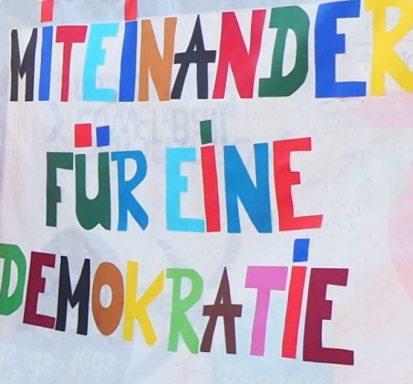 MITEINANDER
FÜR EINE
DEMOKRATIE